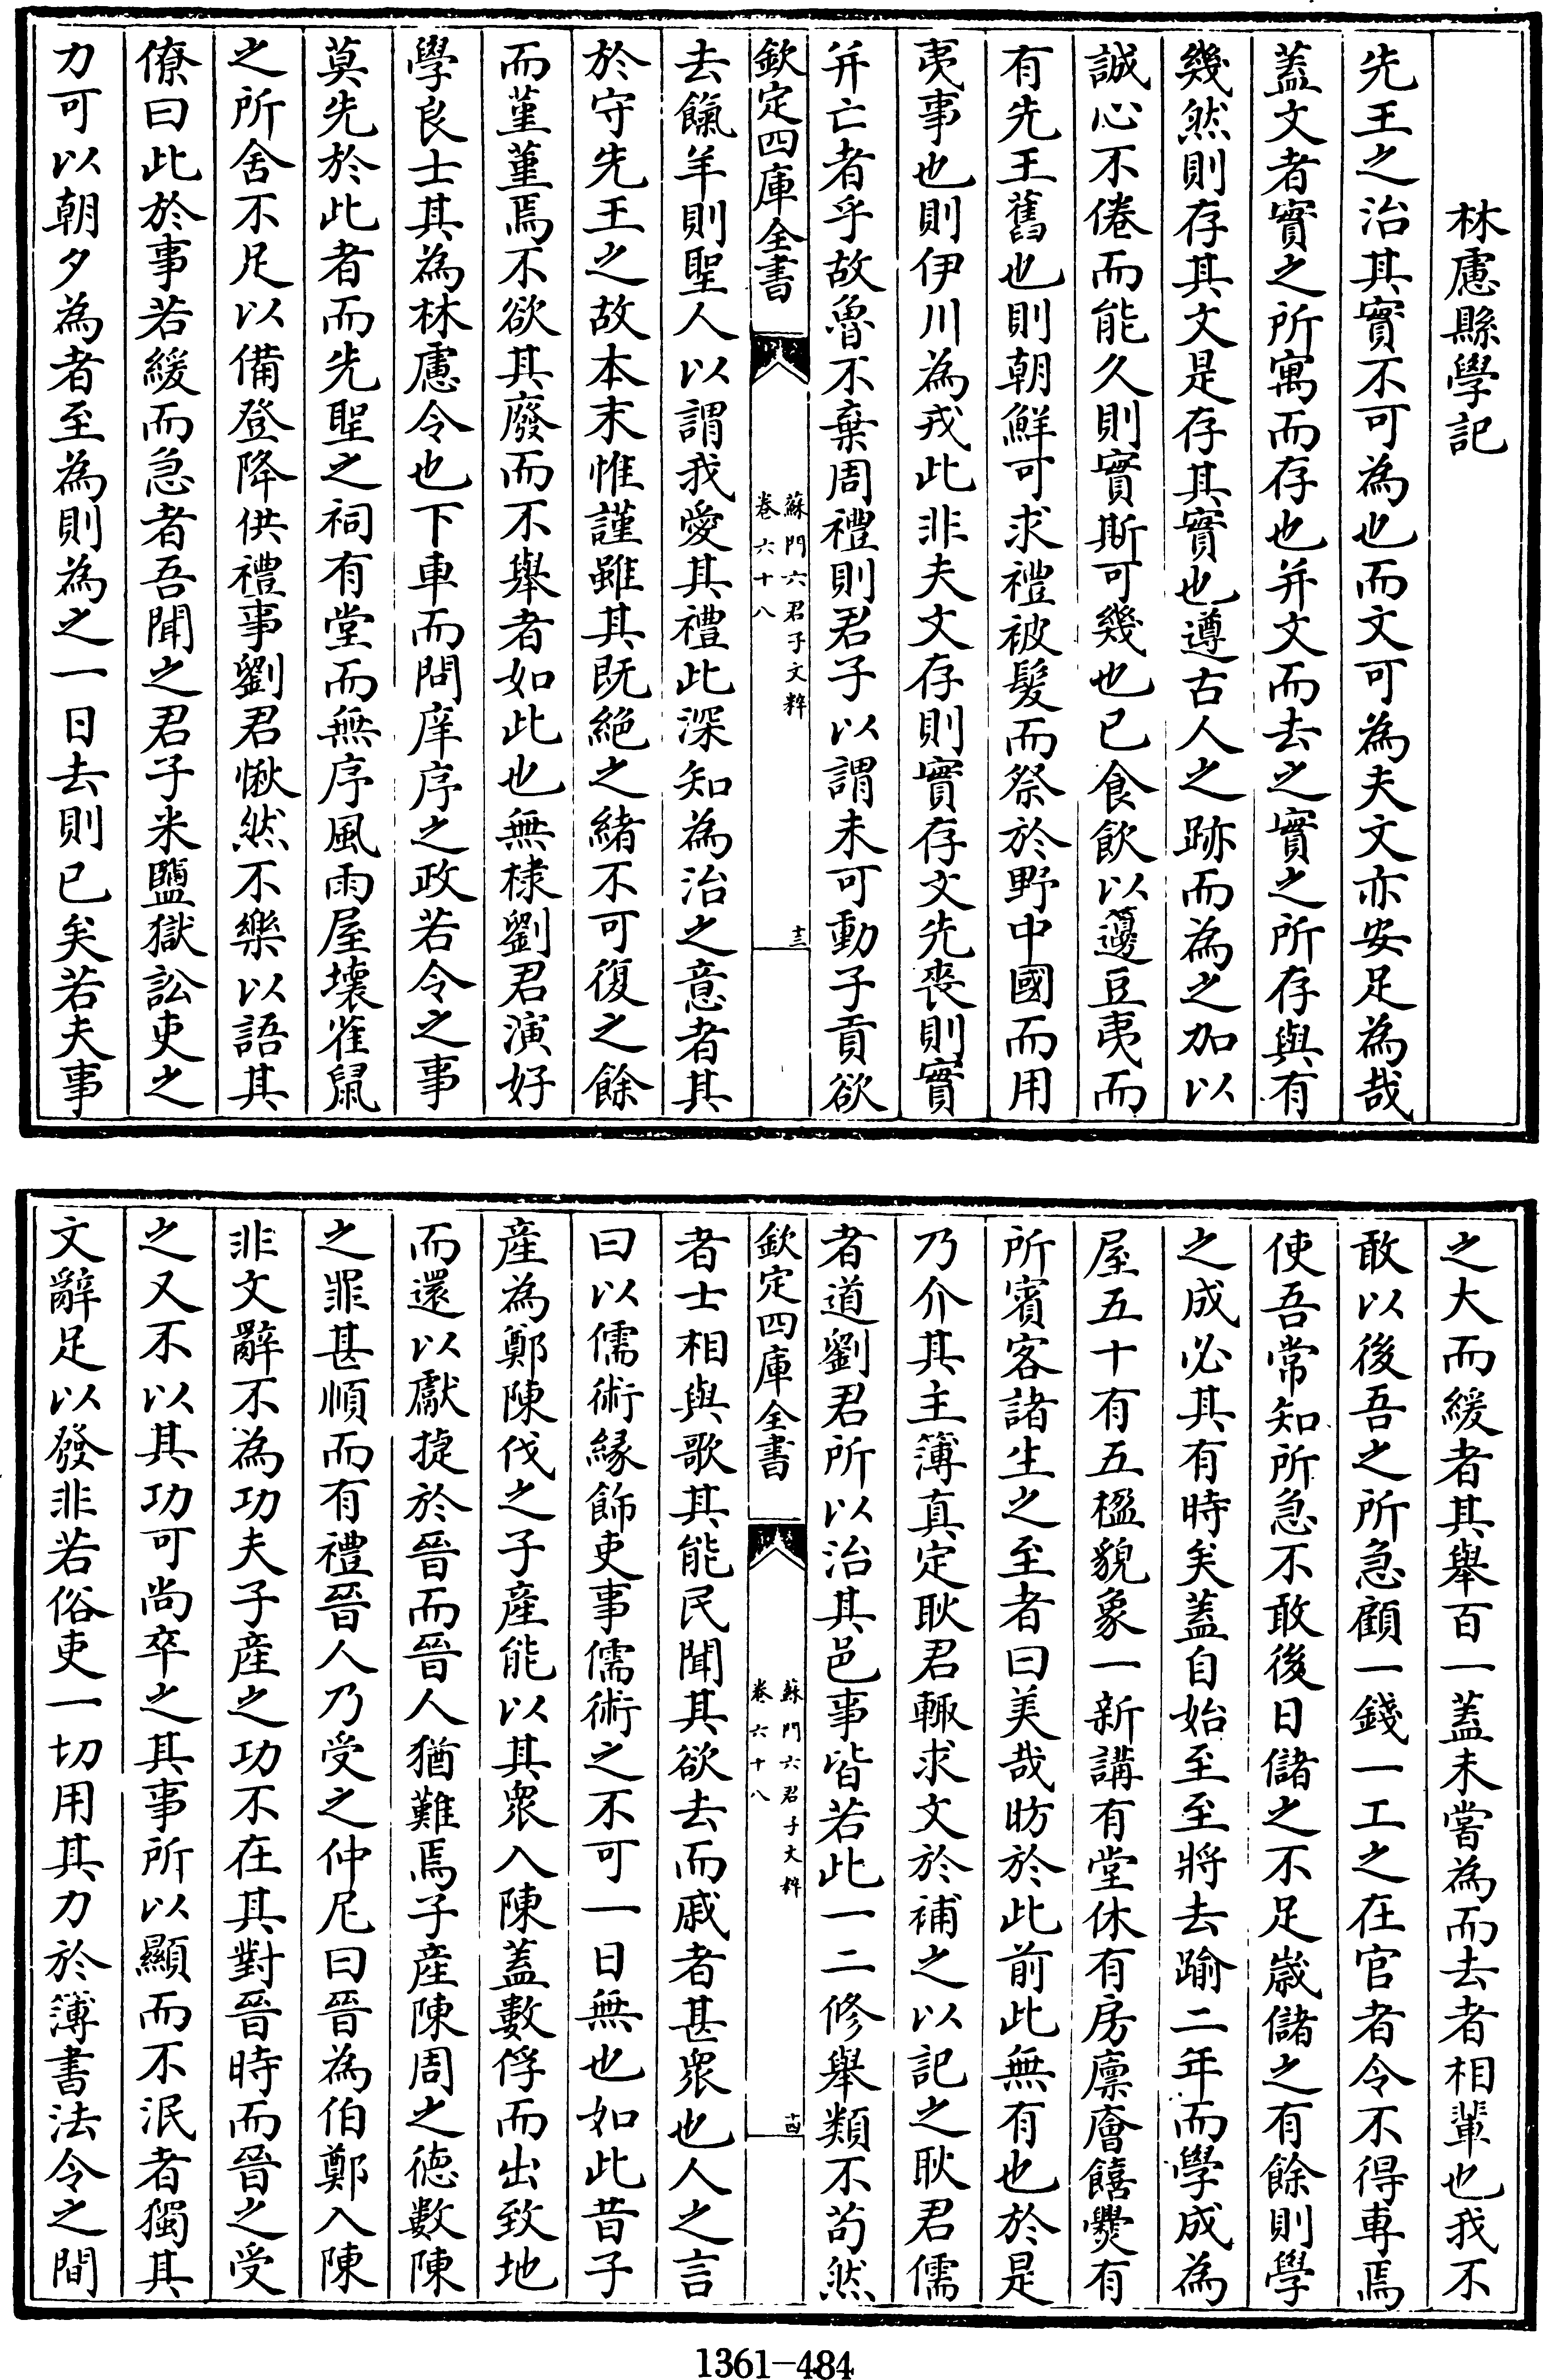 林慮縣學記
先王之治其實不可為也而文可為夫文亦安足為哉
蓋文者實之所寓而存也并文而去之實之所存與有
幾然則存其文是存其實也遵古人之跡而為之加以
誠心不倦而能久則實斯可幾也已食飲以籩豆夷而
有先王舊也則朝鮮可求禮被髮而祭於野中國而用
夷事也則伊川為戎此非夫文存則實存文先喪則實
并亡者乎故魯不棄周禮則君子以謂未可動子貢欲
欽定四庫全書
蘇門六君子文粹
卷六十八
十三
去餼羊則聖人以謂我愛其禮此深知為治之意者其
於守先王之故本末惟謹雖其既絕之緒不可復之餘
而菫菫焉不欲其廢而不舉者如此也無棣劉君演好
學良士其為林慮令也下車而問庠序之政若令之事
莫先於此者而先聖之祠有堂而無序風雨屋壞雀鼠
之所舍不足以備登降供禮事劉君愀然不樂以語其
僚曰此於事若緩而急者吾聞之君子米鹽獄訟吏之
力可以朝夕為者至為則為之一日去則已矣若夫事
之大而緩者其舉百一蓋未嘗為而去者相輩也我不
敢以後吾之所急顧一錢一工之在官者令不得專焉
使吾常知所急不敢後日儲之不足歲儲之有餘則學
之成必其有時矣蓋自始至至將去踰二年而學成為
屋五十有五楹貌象一新講有堂休有房廩廥饎爨有
所賓客諸生之至者曰美哉昉於此前此無有也於是
乃介其主簿真定耿君輙求文於補之以記之耿君儒
者道劉君所以治其邑事皆若此一二修舉類不苟然
欽定四庫全書
蘇門六君子文粹
卷六十八
十四
者士相與歌其能民聞其欲去而戚者甚衆也人之言
曰以儒術緣飾吏事儒術之不可一日無也如此昔子
產為鄭陳伐之子產能以其衆入陳蓋數俘而出致地
而還以獻捷於晉而晉人猶難焉子產陳周之德數陳
之罪甚順而有禮晉人乃受之仲尼曰晉為伯鄭入陳
非文辭不為功夫子產之功不在其對晉時而晉之受
之又不以其功可尚卒之其事所以顯而不泯者獨其
文辭足以發非若俗吏一切用其力於簿書法令之間
1361-484